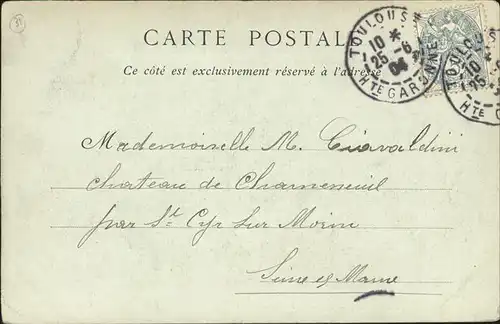 31
CARTE POSTALE
Ce côté est exclusivement réservé à l'adresse
TOULOUSE
10
25-6
04
HTE GARONNE
TOULO
10
25
HTE G
Mademoiselle M. Ciavaldini
chateau de Chameneuil
par St Cyr Sur Morin
Seine et Marne